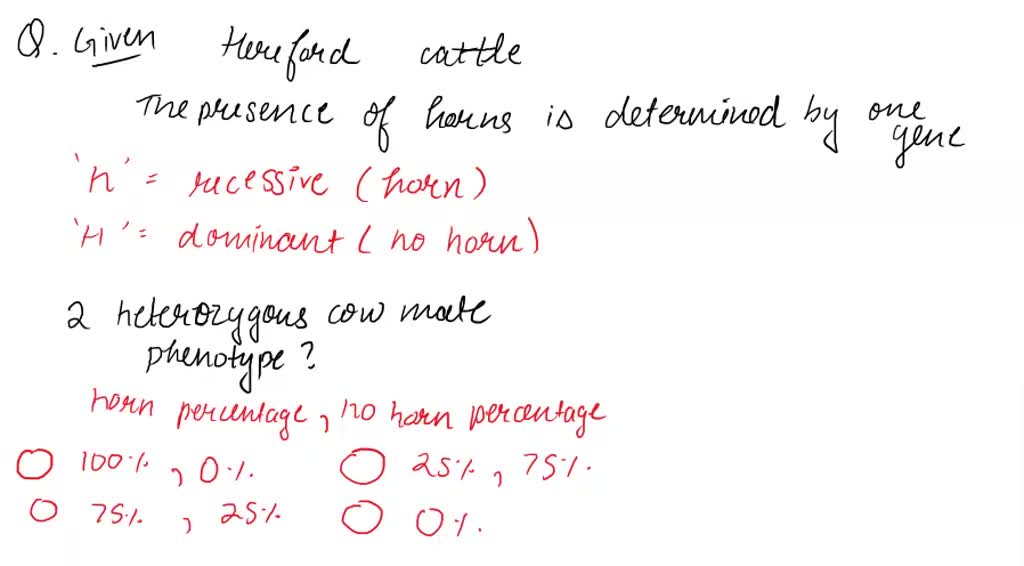 Q. Given Hereford cattle
The presence of horns is determined by one gene
'h' = recessive (horn)
'H' = dominant (no horn)
2 heterozygous cow mate
phenotype?
horn percentage, no horn percentage
100%, 0%. 25%, 75%.
75%, 25% 0%.